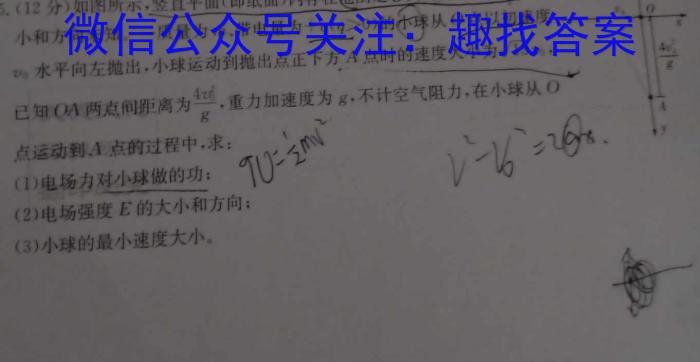 5.(12分)如图所示,竖直平面(即纸面)内存在
小和方向 的小球从 以初速度
微信公众号关注：趣找答案
v₀水平向左抛出,小球运动到抛出点正下方A点时的速度大小为
已知OA两点间距离为4v₀²/g,重力加速度为g,不计空气阻力,在小球从O
点运动到A点的过程中,求:
(1)电场力对小球做的功;
(2)电场强度E的大小和方向;
(3)小球的最小速度大小。
O
x
4v₀²/g
A
y